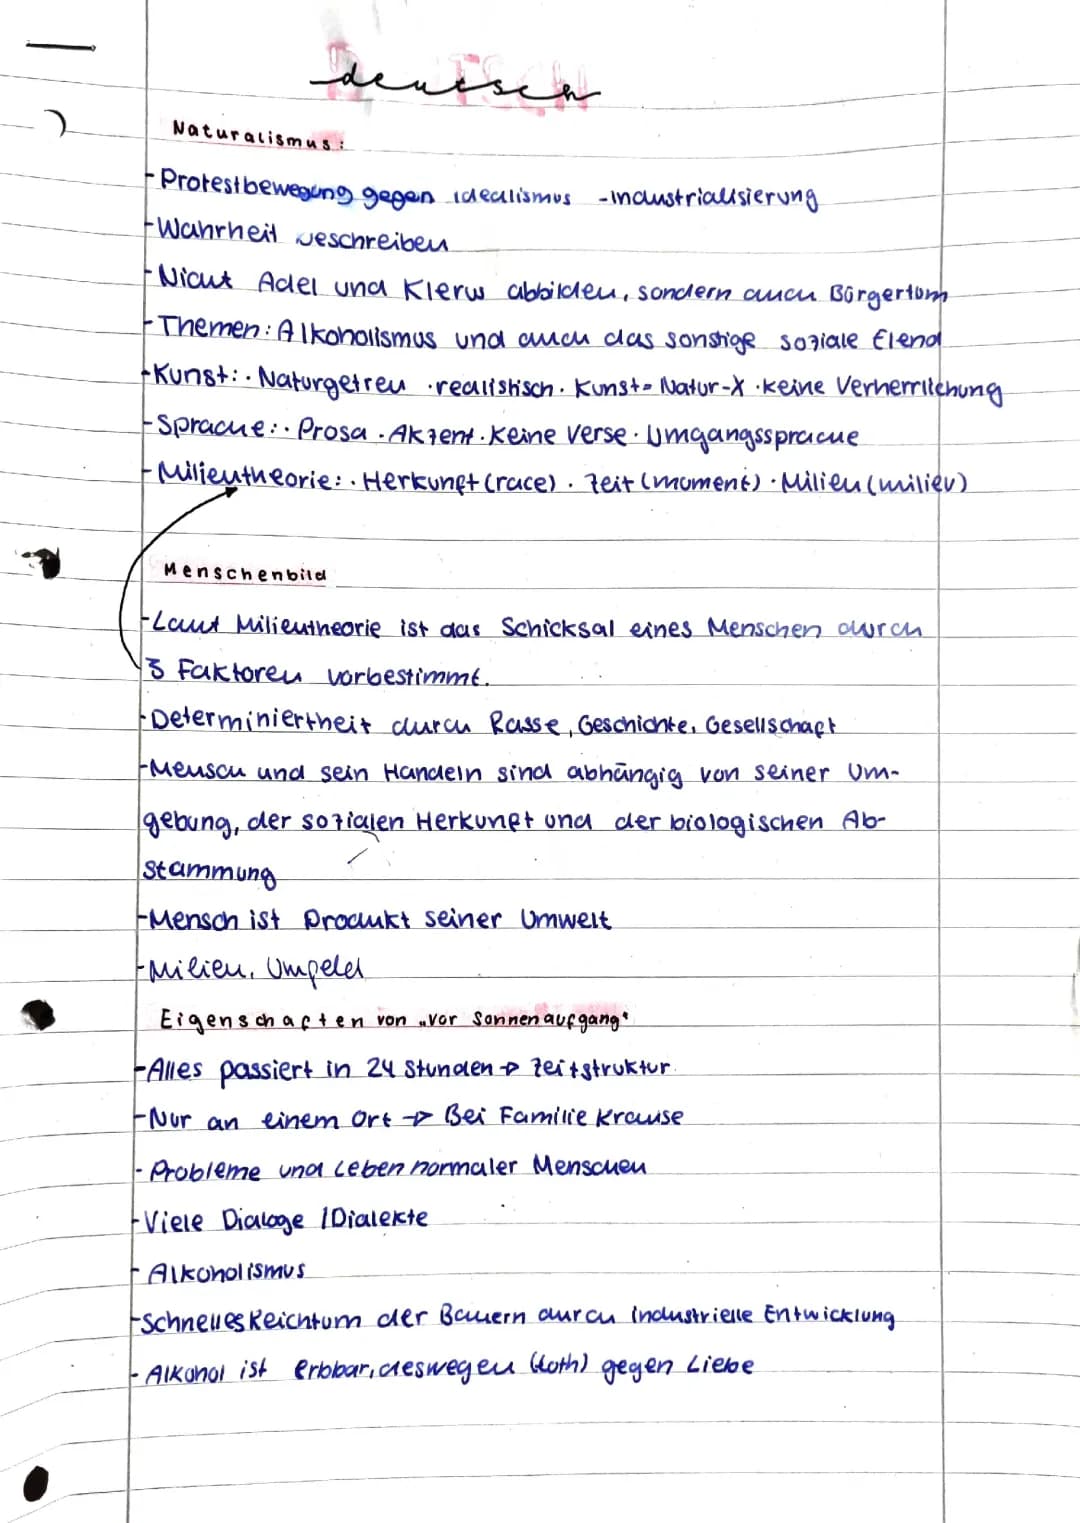 deutsch
Naturalismus:
-Protestbewegung gegen idealismus -industrialisierung
-Wahrheit beschreiben
-Nicht Adel und Klerus abbilden, sondern auch Bürgertum
-Themen: Alkoholismus und auch das sonstige soziale Elend
-Kunst: · Naturgetreu · realistisch · Kunst = Natur-X · keine Verherrlichung
-Sprache: · Prosa · Akzent · Keine Verse · Umgangssprache
-Milieutheorie: · Herkunft (race) · Zeit (moment) · Milieu (milieu)
Menschenbild
-Laut Milieutheorie ist das Schicksal eines Menschen durch
3 Faktoren vorbestimmt.
-Determiniertheit durch Rasse, Geschichte, Gesellschaft
-Mensch und sein Handeln sind abhängig von seiner Um-
gebung, der sozialen Herkunft und der biologischen Ab-
stammung
-Mensch ist Produkt seiner Umwelt
-Milieu, Umfeld
Eigenschaften von „vor Sonnenaufgang"
-Alles passiert in 24 Stunden → Zeitstruktur
-Nur an einem Ort → Bei Familie Krause
- Probleme und Leben normaler Menschen
-Viele Dialoge / Dialekte
- Alkoholismus
-Schnelles Reichtum der Bauern durch industrielle Entwicklung
- Alkohol ist erbbar, deswegen (Loth) gegen Liebe